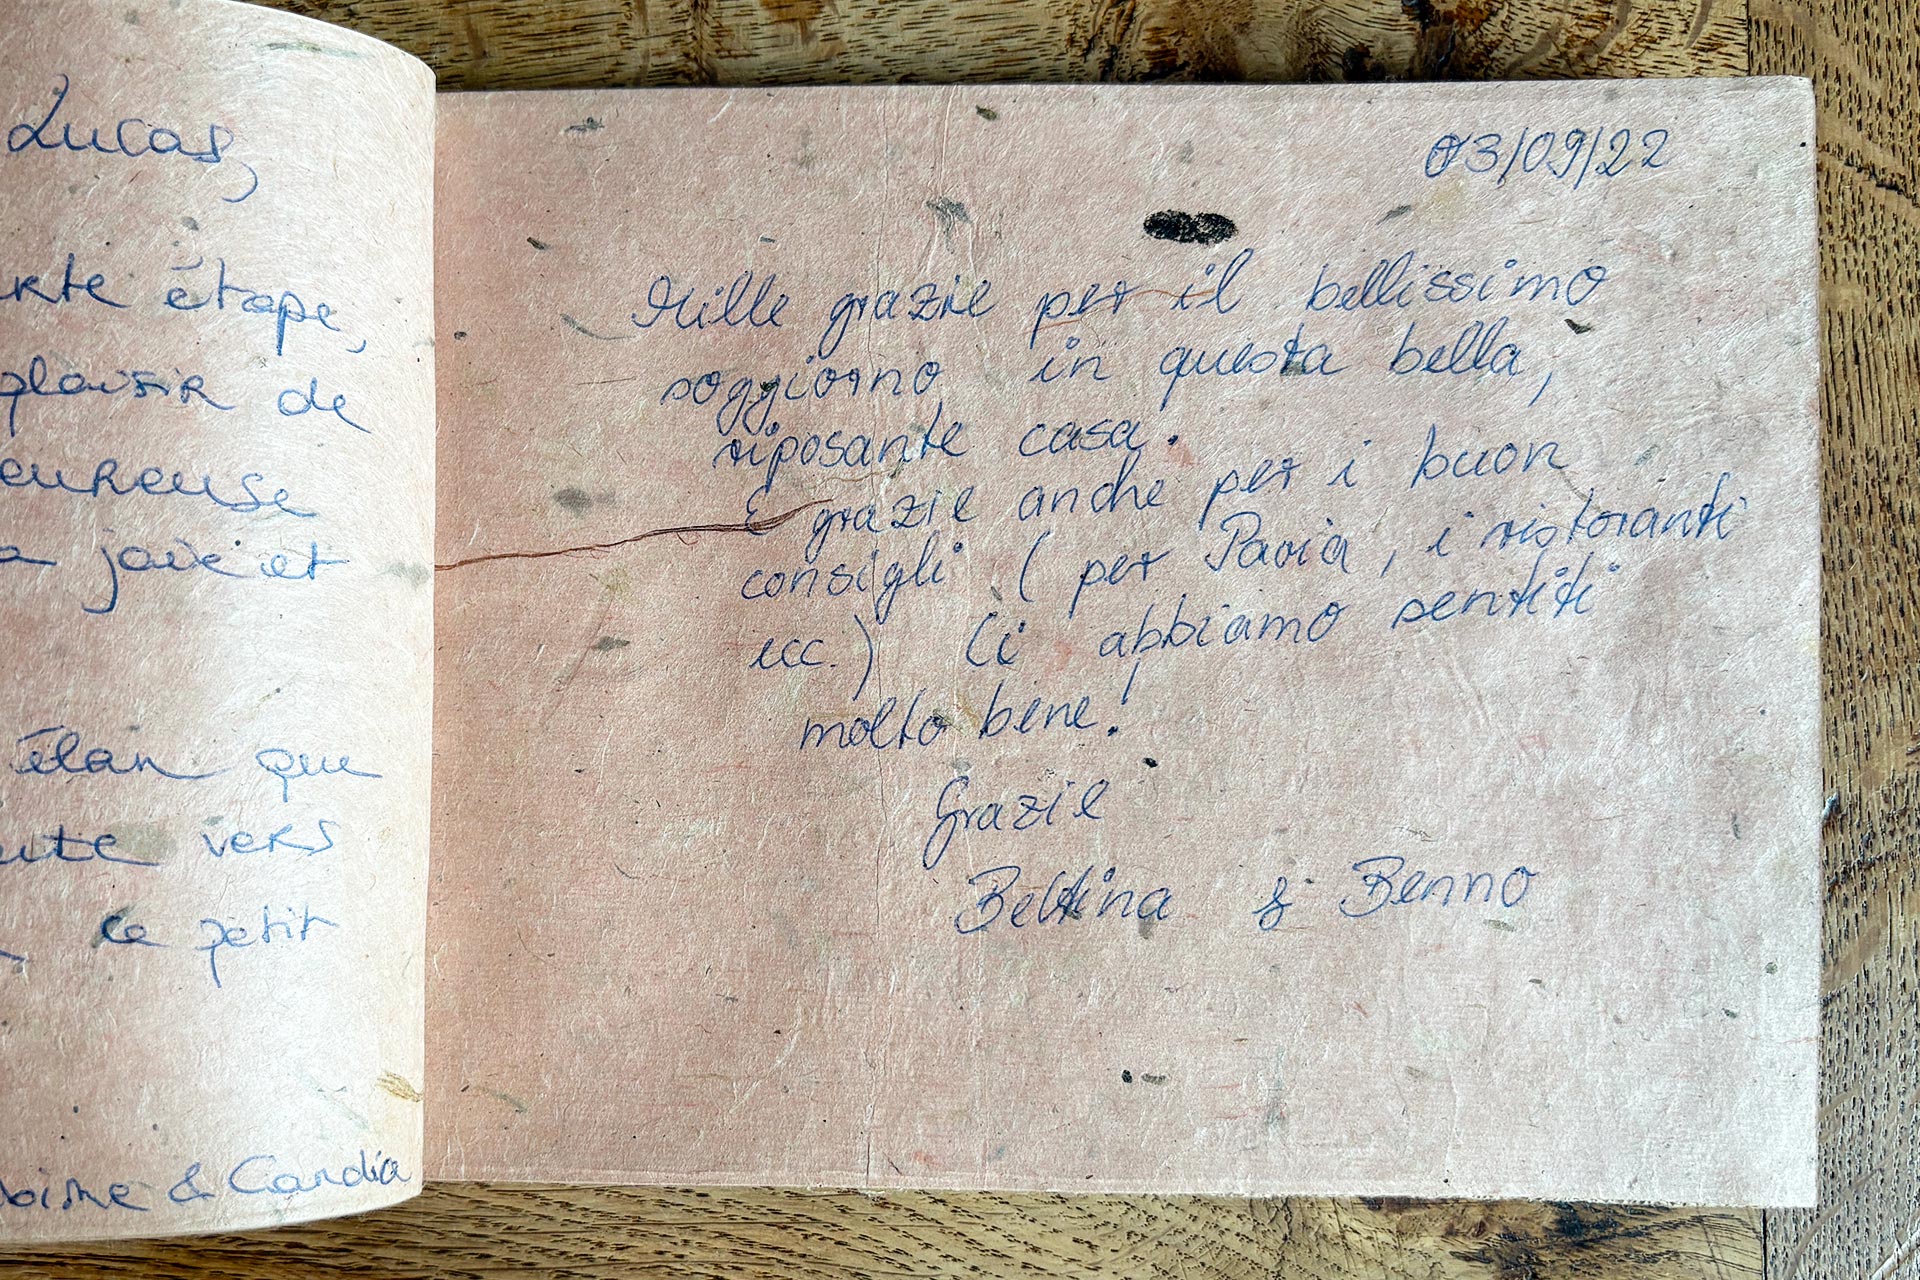 Lucas,
étape,
plaisir de
joie et
élan que
vers
le petit
& Candia
03/09/22
Mille grazie per il bellissimo
soggiorno in questa bella,
riposante casa.
E grazie anche per i buon
consigli (per Pavia, i ristoranti
ecc.) Ci abbiamo sentiti
molto bene!
Grazie
Bettina & Benno